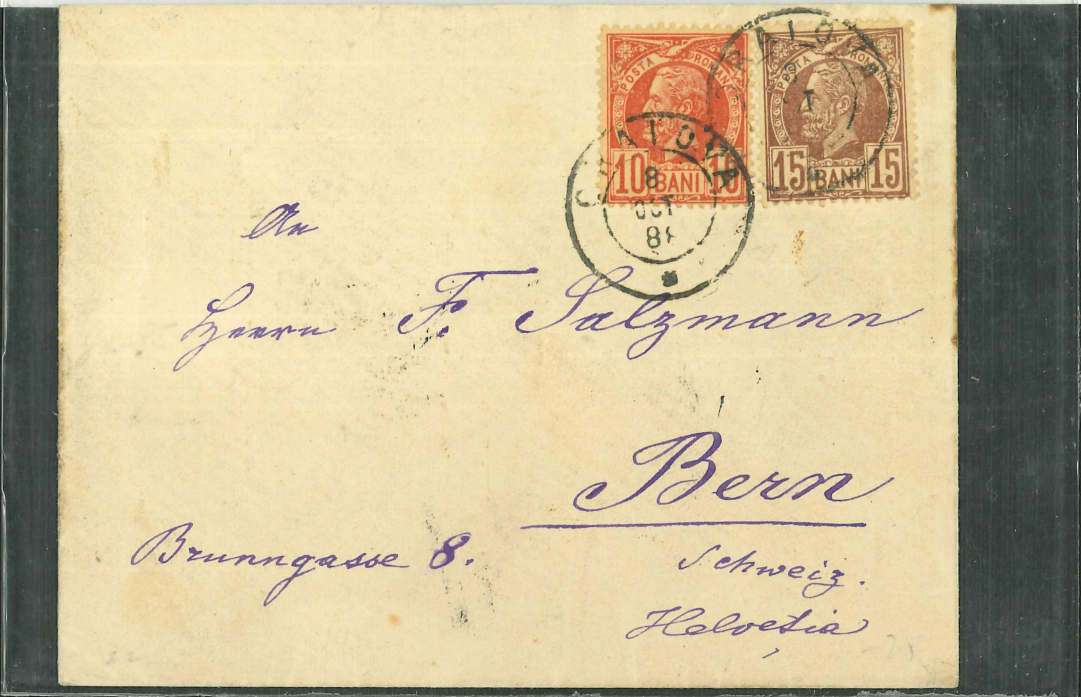 POSTA ROMANA
10 BANI 10
POSTA ROMANA
15 BANI 15
CRAIOVA
8
OCT
88
CRAIOVA
8
An
Herrn F. Salzmann
Bern
Brunngasse 8.
Schweiz.
Helveţia